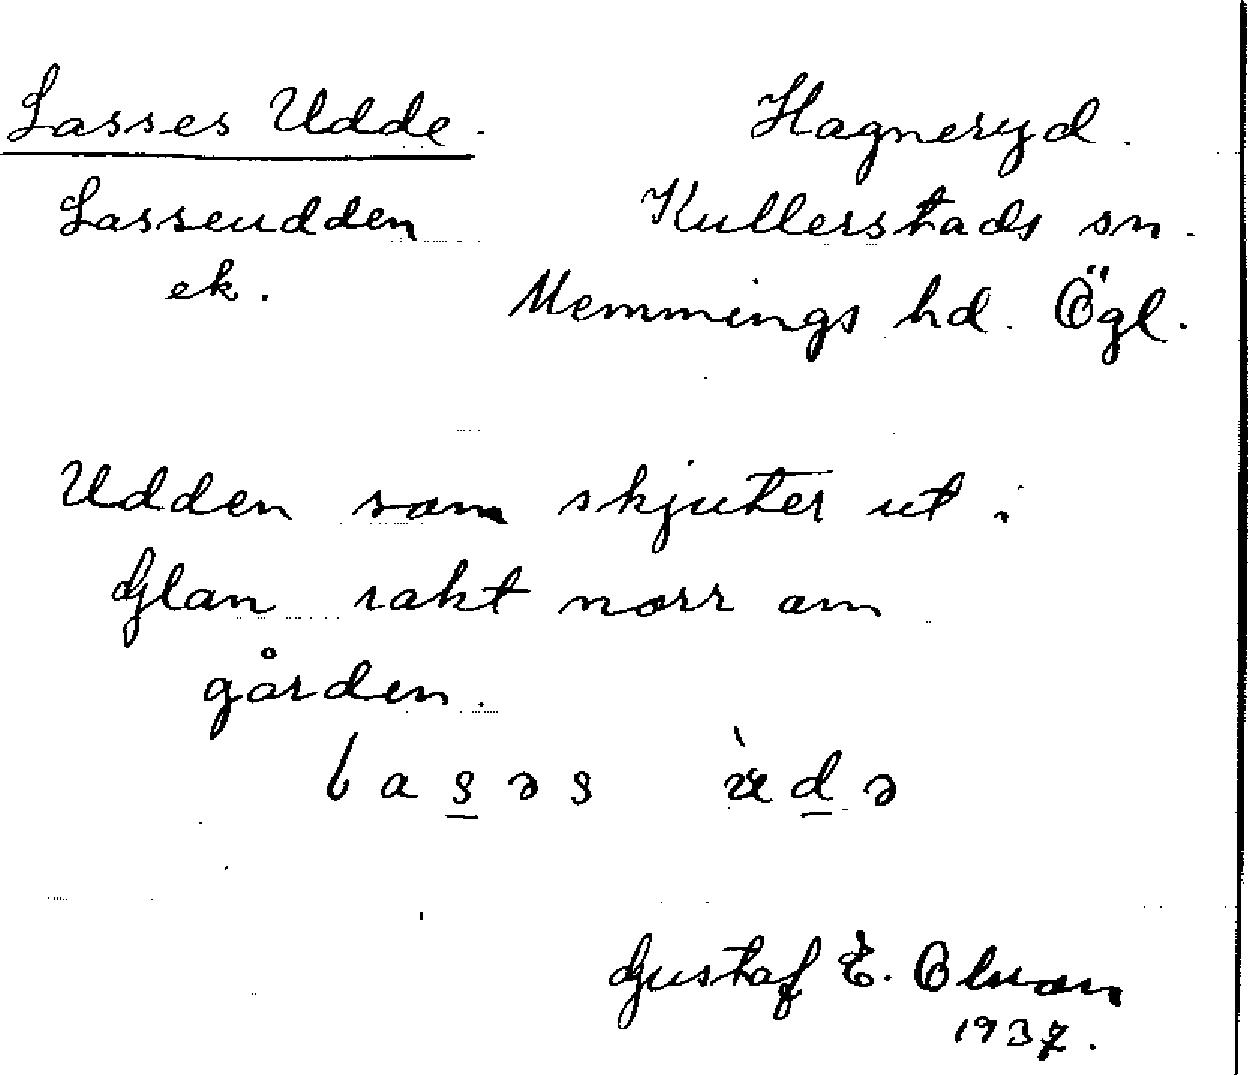 Lasses Udde.
Lasseudden
ek.
Hagneryd.
Kullerstads sn.
Memmings hd. Ögl.
Udden som skjuter ut i
Glan rakt norr om
gården.
Gustaf E. Olson
1937.